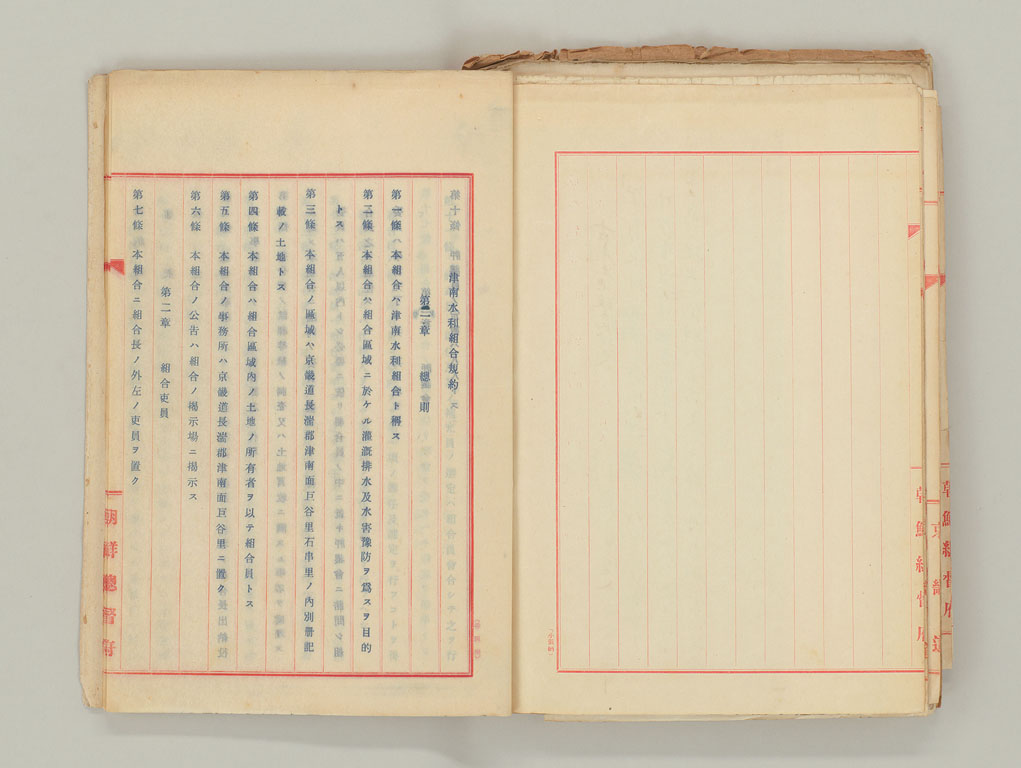 津南水利組合規約
第一章 總則
第一條 本組合ハ津南水利組合ト稱ス
第二條 本組合ハ組合區域ニ於ケル灌漑排水及水害豫防ヲ爲スヲ目的
トス
第三條 本組合ノ區域ハ京畿道長湍郡津南面巨谷里石串里ノ內別冊記
載ノ土地トス
第四條 本組合ハ組合區域內ノ土地ノ所有者ヲ以テ組合員トス
第五條 本組合ノ事務所ハ京畿道長湍郡津南面巨谷里ニ置ク
第六條 本組合ノ公告ハ組合ノ揭示場ニ揭示ス
第二章 組合吏員
第七條 本組合ニ組合長ノ外左ノ吏員ヲ置ク
朝鮮總督府